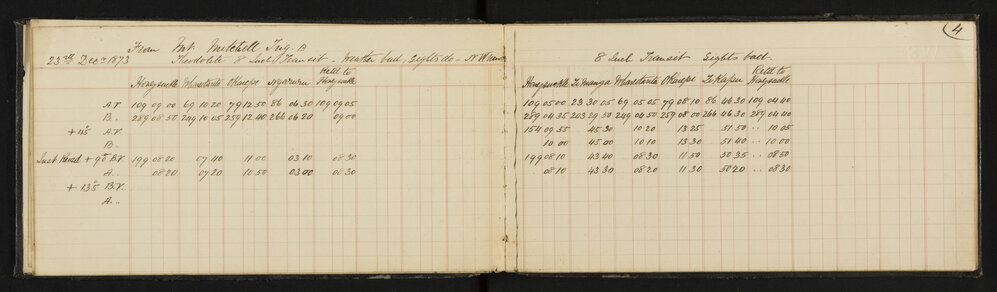 4
From Mt. Mitchell Trig. B
23rd Decr 1873 Theodolite 8 Inch Transit - Weather bad, Sights do - N.W.
Honeysuckle Wharetanta Okaeope Ngapuru Retd to Honeysuckle
A.V. 109 09 00 69 10 20 79 12 50 86 06 30 109 09 05
B.. 289 08 50 249 10 05 259 12 40 266 06 20 09 00
+ 45° A.V.
B..
Inst. Revd + 90° B.V. 199 08 20 07 40 11 00 03 10 08 30
A.. 08 20 07 20 10 50 03 00 08 30
+ 135 B.V.
A..
8 Inch Transit Sights bad.
Honeysuckle Wharetanta Okaeope Retd to Honeysuckle
109 05 00 23 30 05 69 05 05 79 08 10 86 46 30 109 04 40
289 04 35 203 29 50 249 04 50 259 08 00 266 46 30 289 04 40
154 09 55 45 30 10 20 13 25 51 50 .. 10 05
10 00 45 00 10 10 13 30 51 40 .. 10 00
199 08 10 43 40 08 30 11 50 50 35 .. 08 50
08 10 43 30 08 20 11 30 50 20 .. 08 30